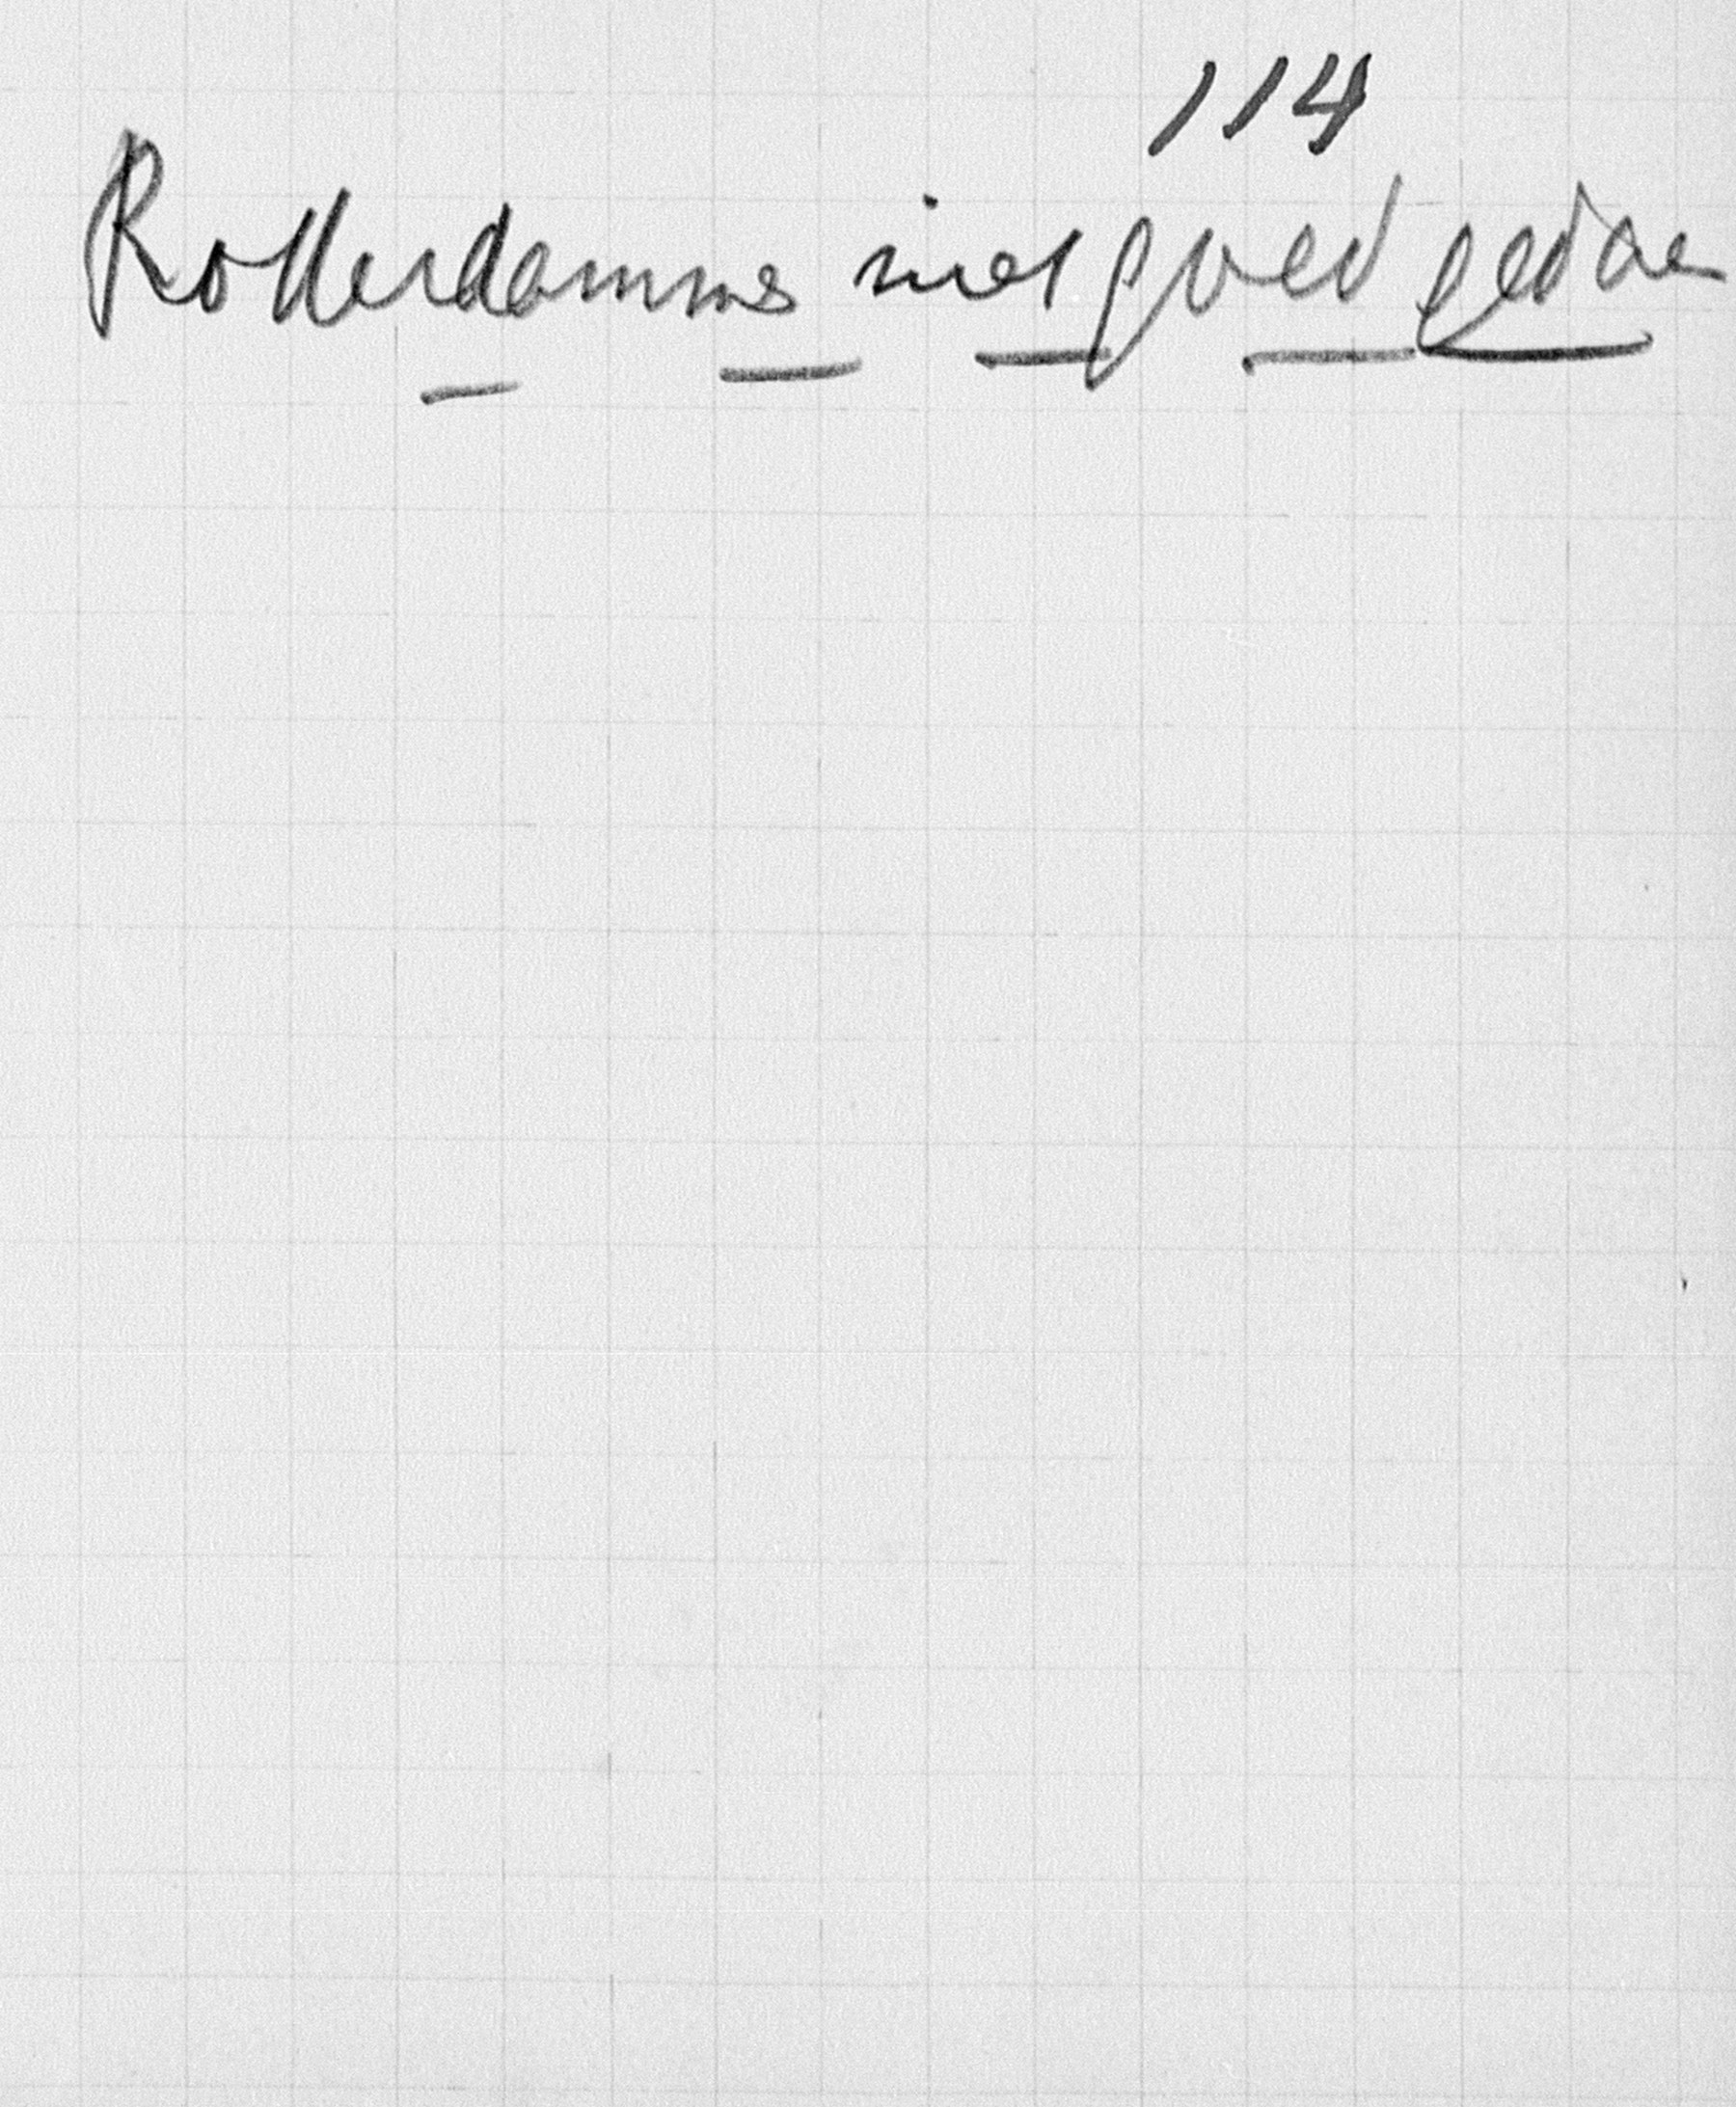 114
Rotterdammers niet goed gedaan